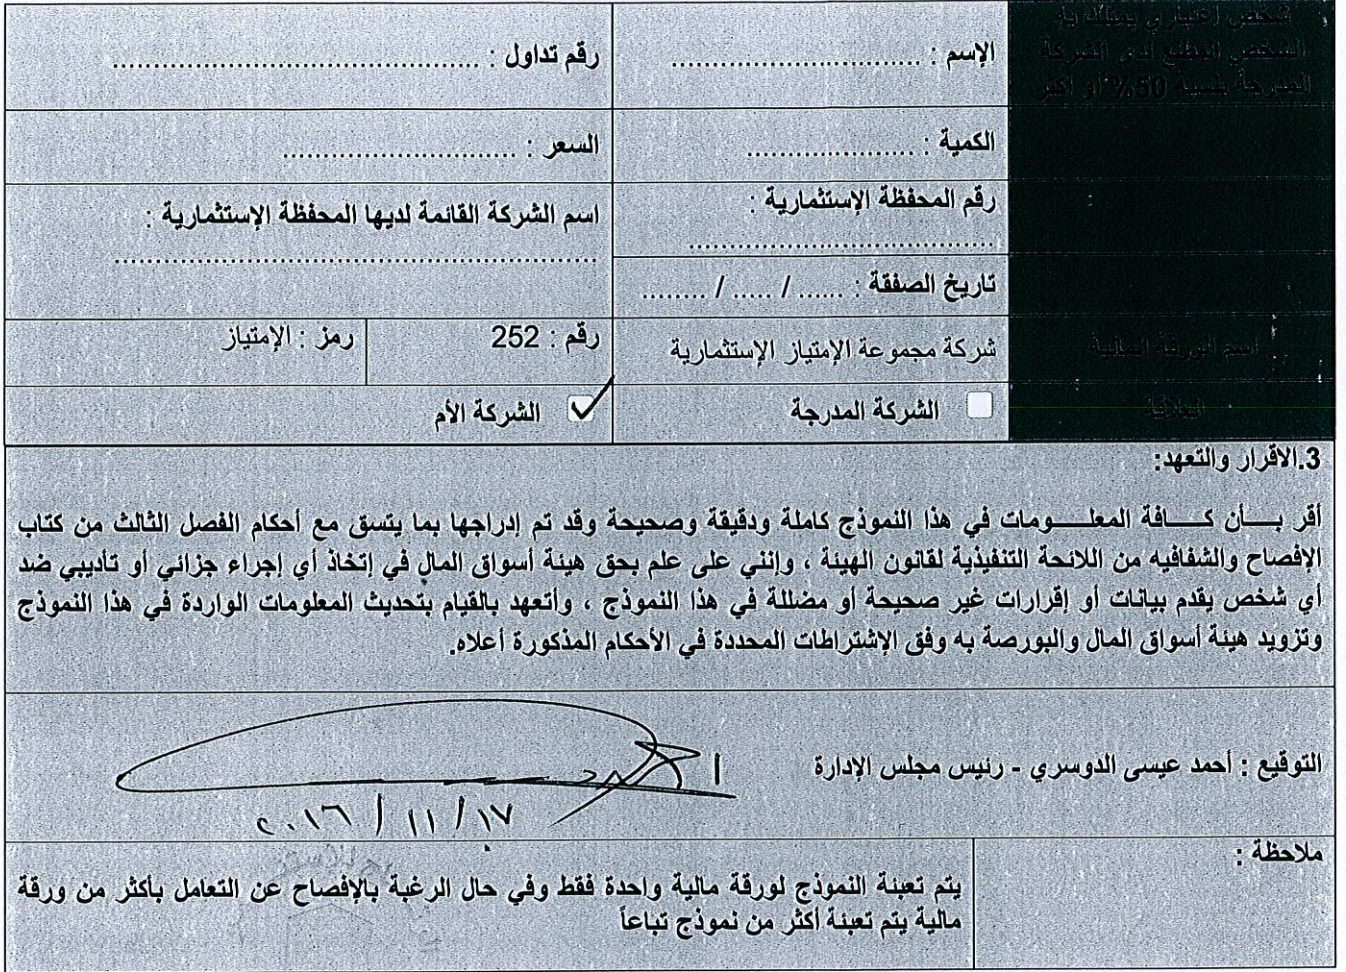 شخص اعتباري يمتلك به
الشخص المطلع لدى الشركة
المدرجة بنسبة 50% أو أكثر
الإسم : ............................
رقم تداول : .........................................
الكمية : ....................
السعر : ...........................
رقم المحفظة الإستثمارية :
...................................
اسم الشركة القائمة لديها المحفظة الإستثمارية :
.......................................................
تاريخ الصفقة : ...... / ..... / ........
اسم الورقة المالية
شركة مجموعة الإمتياز الإستثمارية
رقم : 252
رمز : الإمتياز
العلاقة
الشركة المدرجة
الشركة الأم
3.الاقرار والتعهد:
أقر بــــأن كـــــافة المعلـــــومات في هذا النموذج كاملة ودقيقة وصحيحة وقد تم إدراجها بما يتسق مع أحكام الفصل الثالث من كتاب
الإفصاح والشفافيه من اللائحة التنفيذية لقانون الهيئة ، وإنني على علم بحق هيئة أسواق المال في إتخاذ أي إجراء جزائي أو تأديبي ضد
أي شخص يقدم بيانات أو إقرارات غير صحيحة أو مضللة في هذا النموذج ، وأتعهد بالقيام بتحديث المعلومات الواردة في هذا النموذج
وتزويد هيئة أسواق المال والبورصة به وفق الإشتراطات المحددة في الأحكام المذكورة أعلاه.
التوقيع : أحمد عيسى الدوسري - رئيس مجلس الإدارة
١٧ / ١١ / ٢٠١٦
ملاحظة :
يتم تعبئة النموذج لورقة مالية واحدة فقط وفي حال الرغبة بالإفصاح عن التعامل بأكثر من ورقة
مالية يتم تعبئة أكثر من نموذج تباعاً